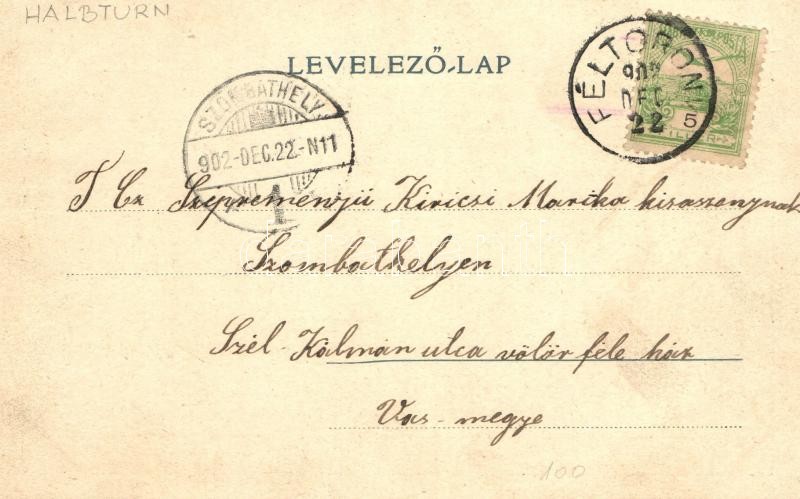 HALBTURN
LEVELEZŐ-LAP
FÉLTORONY
902
DEC
22
5
SZOMBATHELY
902-DEC.22.-N11
1
T Cz Szepreményii Kiricsi Marika kisaszonynak
Szombathelyen
Szél-Kálmán utca völör féle ház
Vas-megye
100